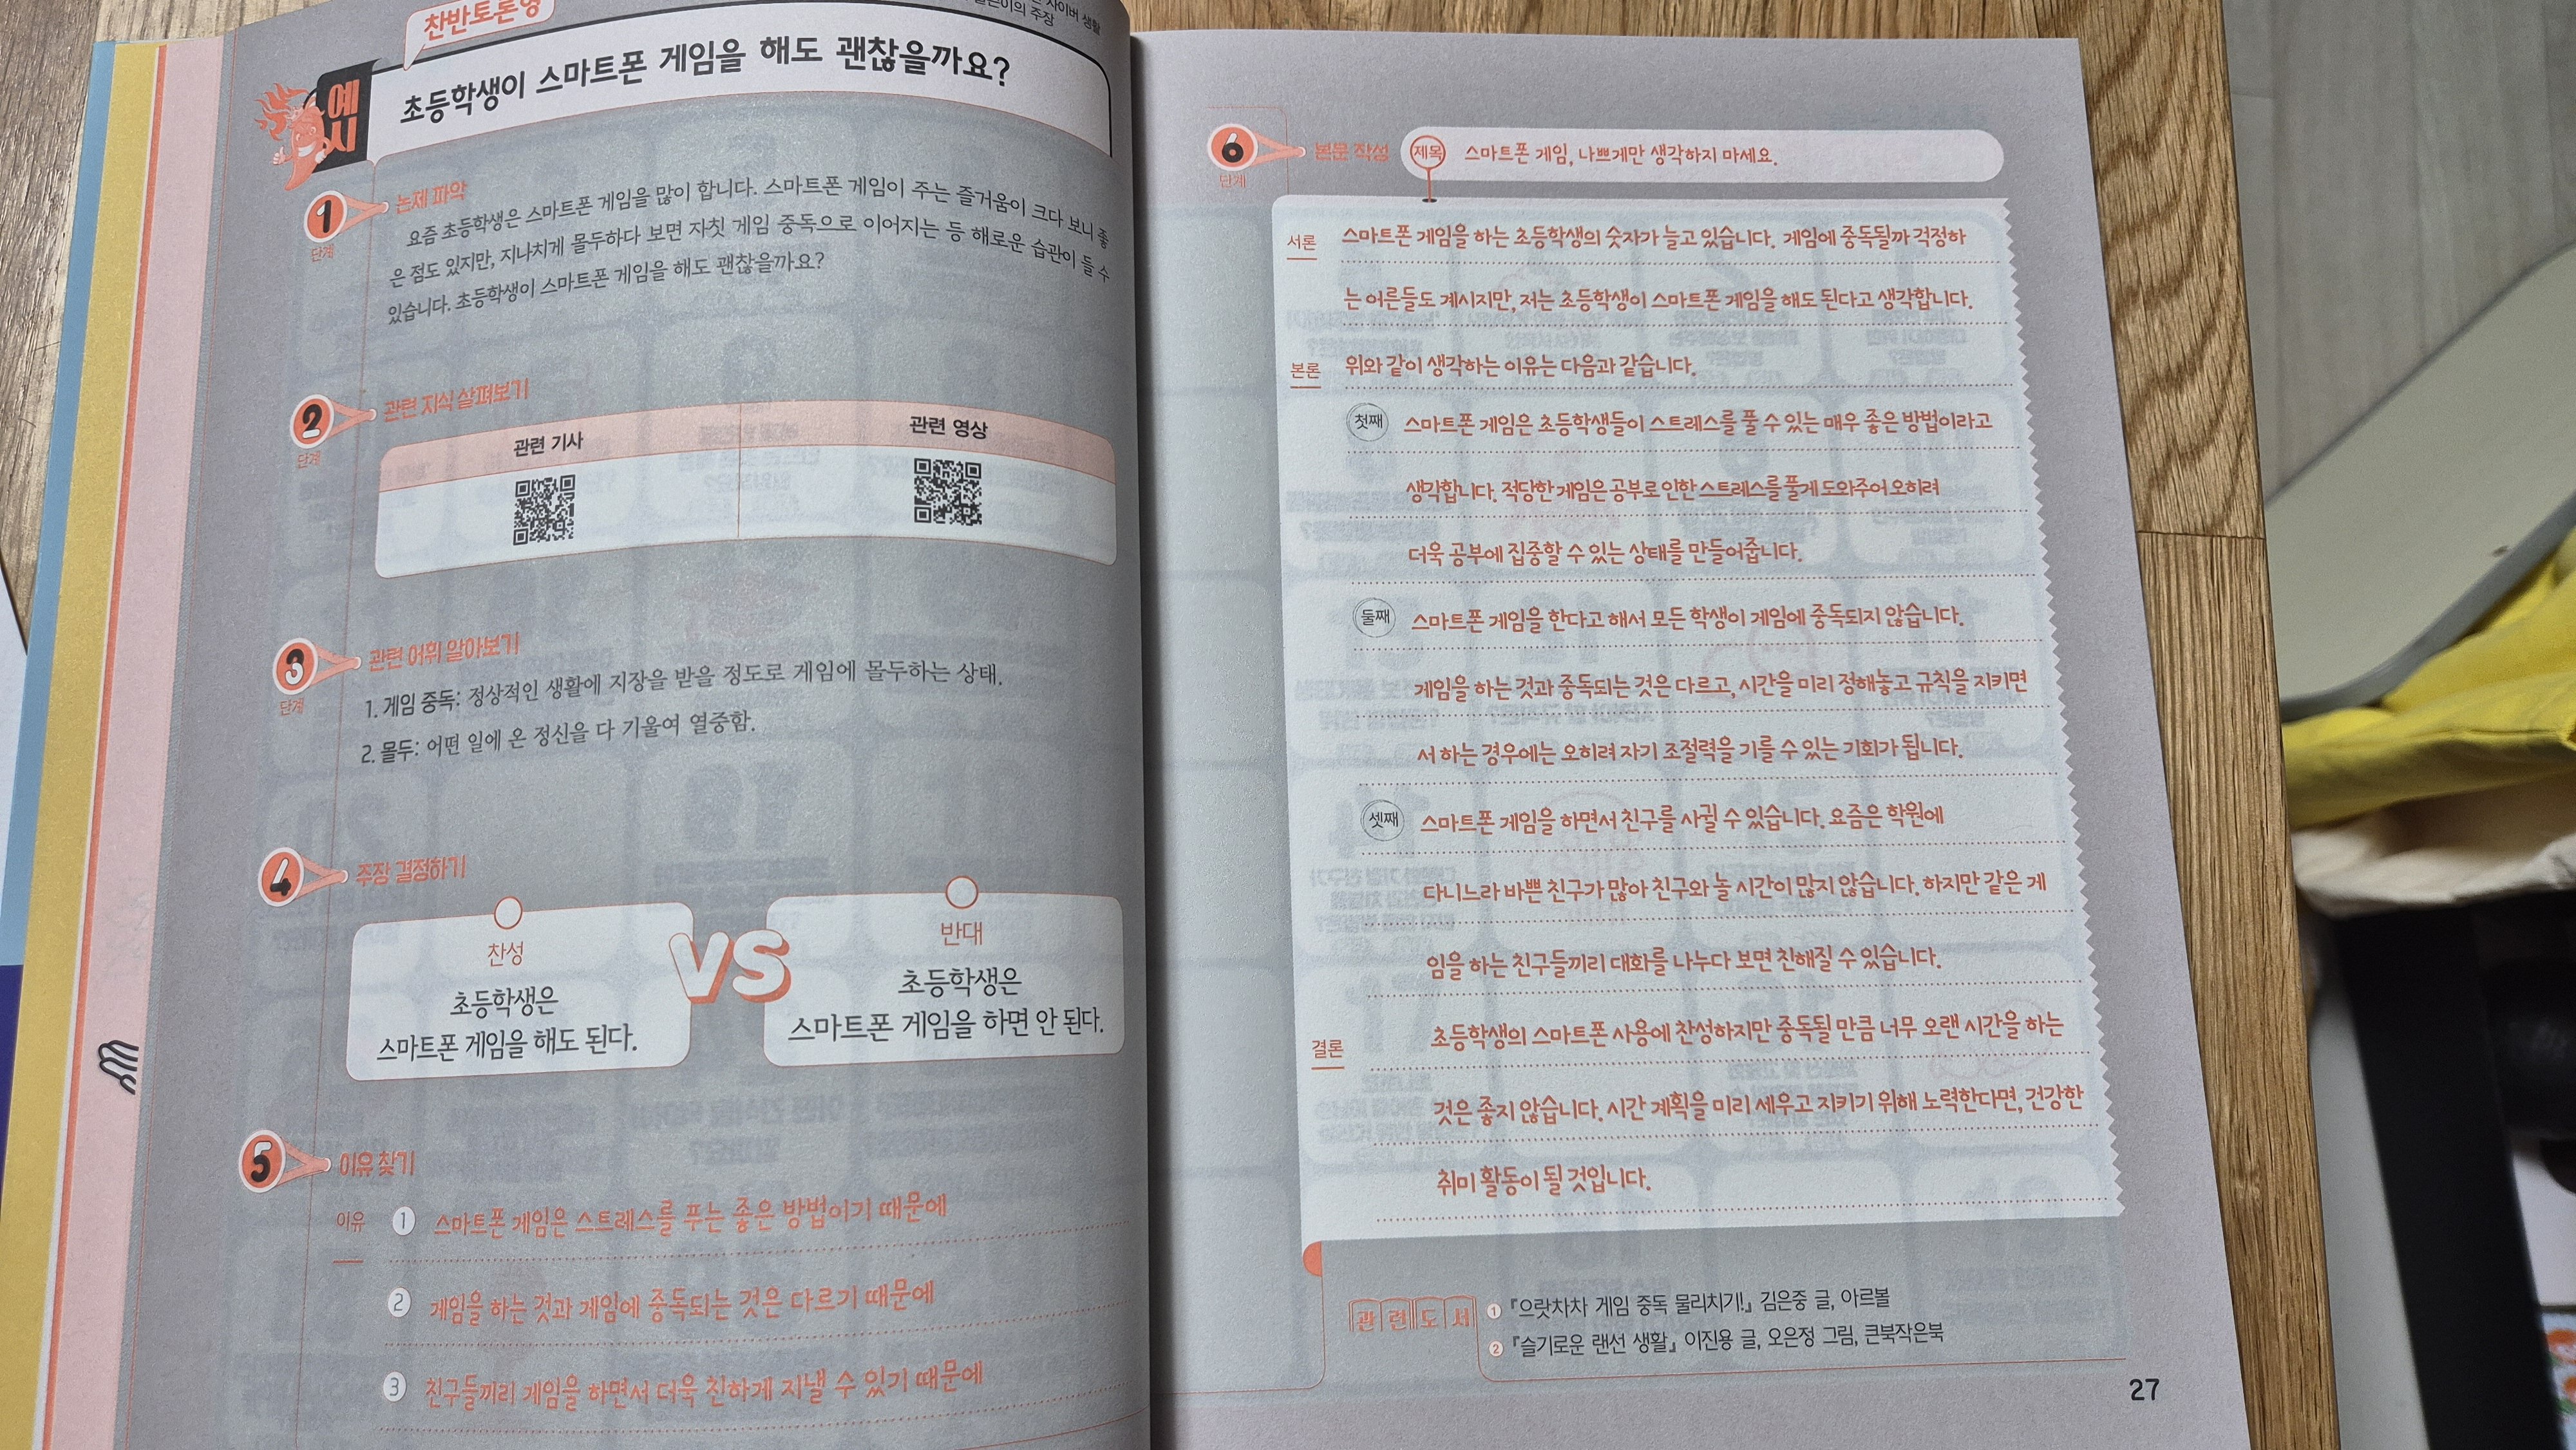 찬반토론형
사이버 생활
글쓴이의 주장
예시
초등학생이 스마트폰 게임을 해도 괜찮을까요?
1 단계
논제 파악
요즘 초등학생은 스마트폰 게임을 많이 합니다. 스마트폰 게임이 주는 즐거움이 크다 보니 좋
은 점도 있지만, 지나치게 몰두하다 보면 자칫 게임 중독으로 이어지는 등 해로운 습관이 들 수
있습니다. 초등학생이 스마트폰 게임을 해도 괜찮을까요?
2 단계
관련 지식 살펴보기
관련 기사
관련 영상
3 단계
관련 어휘 알아보기
1. 게임 중독: 정상적인 생활에 지장을 받을 정도로 게임에 몰두하는 상태.
2. 몰두: 어떤 일에 온 정신을 다 기울여 열중함.
4
주장 결정하기
찬성
초등학생은
스마트폰 게임을 해도 된다.
VS
반대
초등학생은
스마트폰 게임을 하면 안 된다.
5
이유 찾기
이유
1 스마트폰 게임은 스트레스를 푸는 좋은 방법이기 때문에
2 게임을 하는 것과 게임에 중독되는 것은 다르기 때문에
3 친구들끼리 게임을 하면서 더욱 친하게 지낼 수 있기 때문에
6 단계
본문 작성
제목 스마트폰 게임, 나쁘게만 생각하지 마세요.
서론 스마트폰 게임을 하는 초등학생의 숫자가 늘고 있습니다. 게임에 중독될까 걱정하
는 어른들도 계시지만, 저는 초등학생이 스마트폰 게임을 해도 된다고 생각합니다.
본론 위와 같이 생각하는 이유는 다음과 같습니다.
첫째 스마트폰 게임은 초등학생들이 스트레스를 풀 수 있는 매우 좋은 방법이라고
생각합니다. 적당한 게임은 공부로 인한 스트레스를 풀게 도와주어 오히려
더욱 공부에 집중할 수 있는 상태를 만들어줍니다.
둘째 스마트폰 게임을 한다고 해서 모든 학생이 게임에 중독되지 않습니다.
게임을 하는 것과 중독되는 것은 다르고, 시간을 미리 정해놓고 규칙을 지키면
서 하는 경우에는 오히려 자기 조절력을 기를 수 있는 기회가 됩니다.
셋째 스마트폰 게임을 하면서 친구를 사귈 수 있습니다. 요즘은 학원에
다니느라 바쁜 친구가 많아 친구와 놀 시간이 많지 않습니다. 하지만 같은 게
임을 하는 친구들끼리 대화를 나누다 보면 친해질 수 있습니다.
결론 초등학생의 스마트폰 사용에 찬성하지만 중독될 만큼 너무 오랜 시간을 하는
것은 좋지 않습니다. 시간 계획을 미리 세우고 지키기 위해 노력한다면, 건강한
취미 활동이 될 것입니다.
관련도서
1 『으랏차차 게임 중독 물리치기!』 김은중 글, 아르볼
2 『슬기로운 랜선 생활』 이진용 글, 오은정 그림, 큰북작은북
27